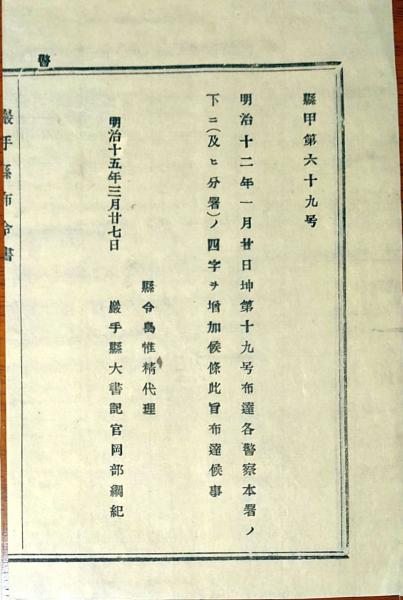 警
縣甲第六十九号
明治十二年一月廿日坤第十九号布達各警察本署ノ
下ニ(及ヒ分署)ノ四字ヲ増加候條此旨布達候事
明治十五年三月廿七日
縣令島惟精代理
巖手縣大書記官岡部綱紀
巖手縣布令書